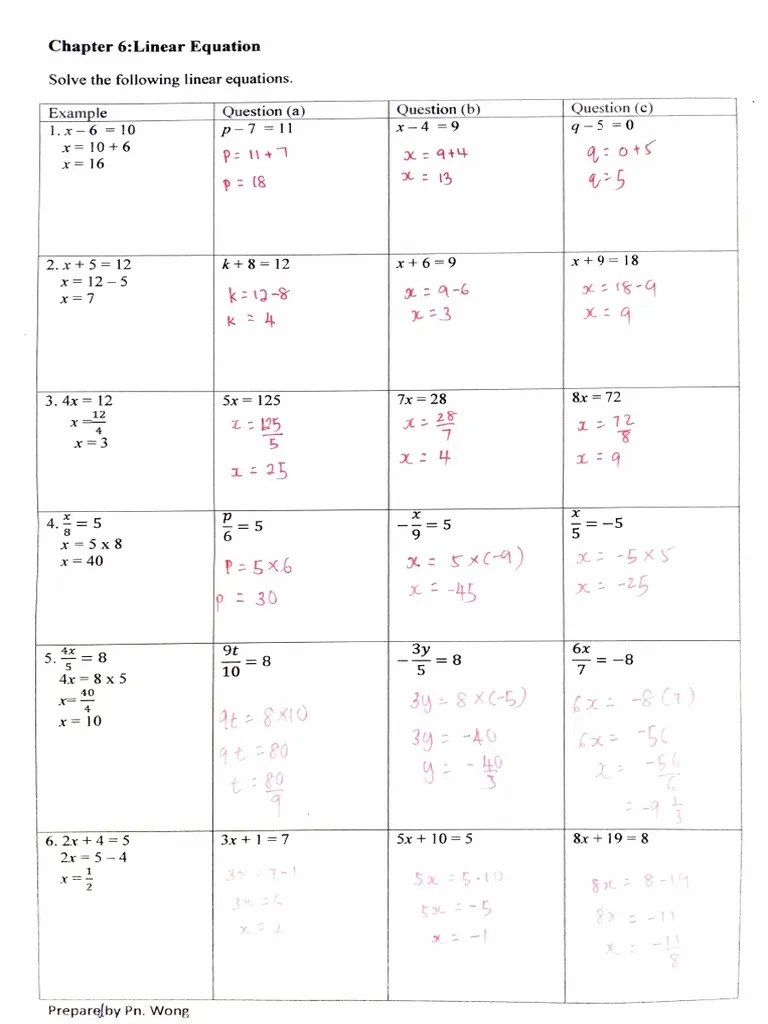 Chapter 6:Linear Equation
Solve the following linear equations.
Example Question (a) Question (b) Question (c)
1. x – 6 = 10
x = 10 + 6
x = 16
p – 7 = 11
p = 11 + 7
p = 18
x – 4 = 9
x = 9+4
x = 13
q – 5 = 0
q = 0+5
q = 5
2. x + 5 = 12
x = 12 – 5
x = 7
k + 8 = 12
k = 12-8
k = 4
x + 6 = 9
x = 9-6
x = 3
x + 9 = 18
x = 18-9
x = 9
3. 4x = 12
x = 12/4
x = 3
5x = 125
x = 125/5
x = 25
7x = 28
x = 28/7
x = 4
8x = 72
x = 72/8
x = 9
4. x/8 = 5
x = 5 x 8
x = 40
p/6 = 5
p = 5×6
p = 30
–x/9 = 5
x = 5×(-9)
x = -45
x/5 = –5
x = -5 × 5
x = -25
5. 4x/5 = 8
4x = 8 x 5
x= 40/4
x = 10
9t/10 = 8
9t = 8×10
9t = 80
t = 80/9
–3y/5 = 8
3y = 8 ×(-5)
3y = -40
y = - 40/3
6x/7 = –8
6x = -8(7)
6x = -56
x = -56/6
= -9 1/3
6. 2x + 4 = 5
2x = 5 – 4
x = 1/2
3x + 1 = 7
3x = 7-1
3x = 6
x = 2
5x + 10 = 5
5x = 5-10
5x = -5
x = -1
8x + 19 = 8
8x = 8-19
8x = -11
x = -11/8
Prepare by Pn. Wong